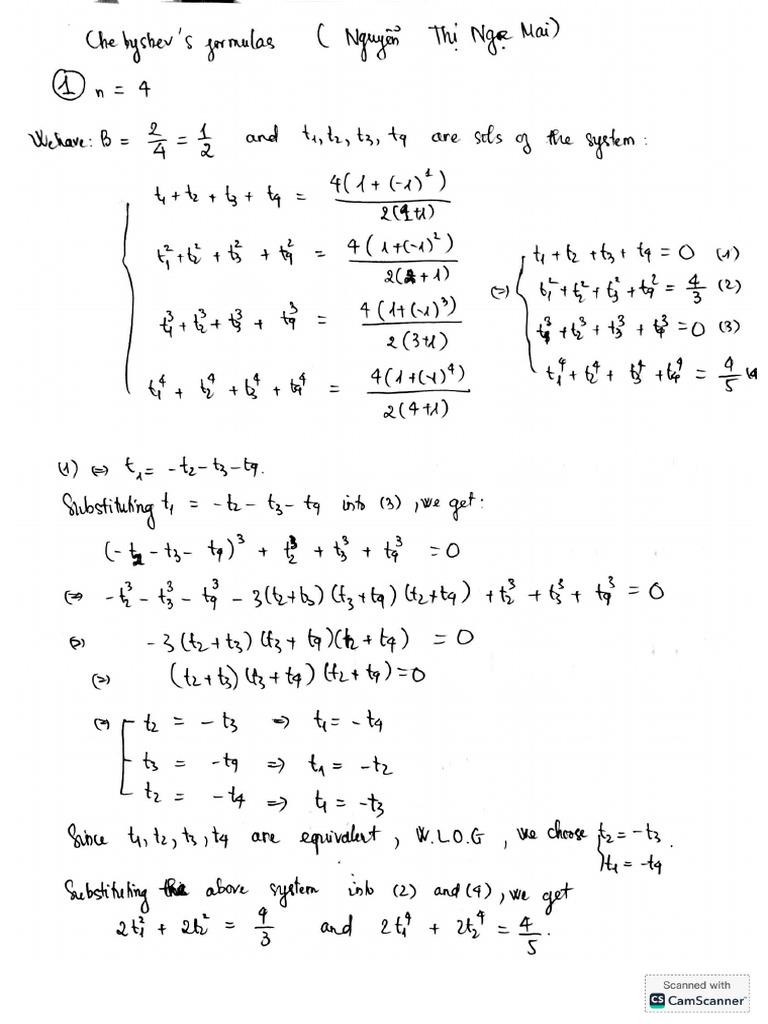 Chebyshev's formulas ( Nguyễn Thị Ngọc Mai)
① n = 4
We have: B = 2/4 = 1/2 and t₁, t₂, t₃, t₄ are sols of the system:
t₁ + t₂ + t₃ + t₄ = 4(1 + (-1)¹) / 2(1+1)
t₁² + t₂² + t₃² + t₄² = 4(1 + (-1)²) / 2(2+1)
t₁³ + t₂³ + t₃³ + t₄³ = 4(1 + (-1)³) / 2(3+1)
t₁⁴ + t₂⁴ + t₃⁴ + t₄⁴ = 4(1 + (-1)⁴) / 2(4+1)
(=) t₁ + t₂ + t₃ + t₄ = 0 (1)
t₁² + t₂² + t₃² + t₄² = 4/3 (2)
t₁³ + t₂³ + t₃³ + t₄³ = 0 (3)
t₁⁴ + t₂⁴ + t₃⁴ + t₄⁴ = 4/5 (4
(1) (=) t₁ = -t₂ - t₃ - t₄.
Substituting t₁ = -t₂ - t₃ - t₄ into (3), we get:
(-t₂ - t₃ - t₄)³ + t₂³ + t₃³ + t₄³ = 0
(=) -t₂³ - t₃³ - t₄³ - 3(t₂+t₃)(t₃+t₄)(t₂+t₄) + t₂³ + t₃³ + t₄³ = 0
(=) -3(t₂+t₃)(t₃+t₄)(t₂+t₄) = 0
(=) (t₂+t₃)(t₃+t₄)(t₂+t₄) = 0
(=) t₂ = -t₃ => t₁ = -t₄
t₃ = -t₄ => t₁ = -t₂
t₂ = -t₄ => t₁ = -t₃
Since t₁, t₂, t₃, t₄ are equivalent, W.L.O.G, we choose t₂ = -t₃.
t₁ = -t₄
Substituting the above system into (2) and (4), we get
2t₁² + 2t₂² = 4/3 and 2t₁⁴ + 2t₂⁴ = 4/5.
Scanned with
CS CamScanner